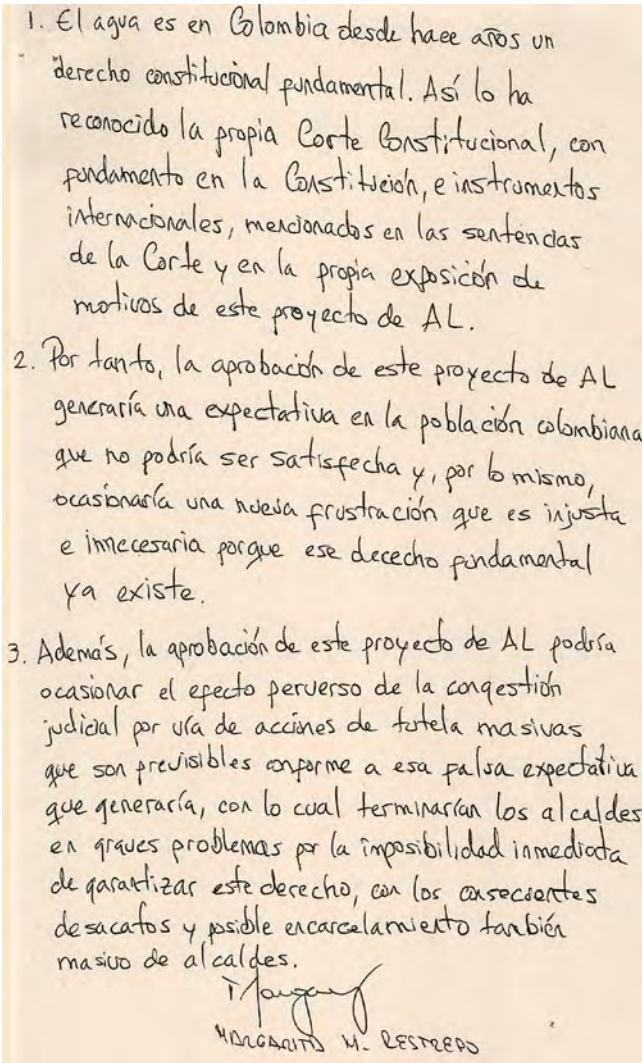 1. El agua es en Colombia desde hace años un
derecho constitucional fundamental. Así lo ha
reconocido la propia Corte Constitucional, con
fundamento en la Constitución, e instrumentos
internacionales, mencionados en las sentencias
de la Corte y en la propia exposición de
motivos de este proyecto de AL.
2. Por tanto, la aprobación de este proyecto de AL
generaría una expectativa en la población colombiana
que no podría ser satisfecha y, por lo mismo,
ocasionaría una nueva frustración que es injusta
e innecesaria porque ese derecho fundamental
ya existe.
3. Además, la aprobación de este proyecto de AL podría
ocasionar el efecto perverso de la congestión
judicial por vía de acciones de tutela masivas
que son previsibles conforme a esa falsa expectativa
que generaría, con lo cual terminarían los alcaldes
en graves problemas por la imposibilidad inmediata
de garantizar este derecho, con los consecuentes
desacatos y posible encarcelamiento también
masivo de alcaldes.
MARGARITA M. RESTREPO